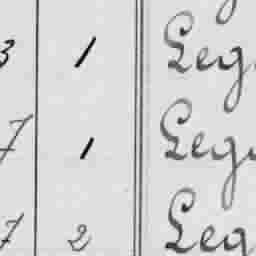 3 1 Leg
7 1 Leg
7 2 Leg